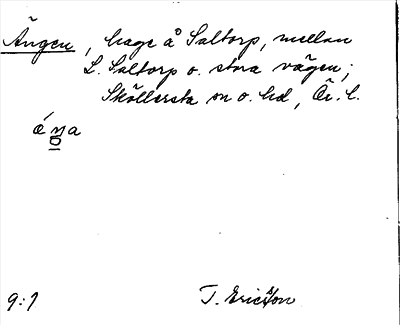 Ängen, hage å Saltorp, mellan
L. Saltorp o. stora vägen;
Sköllersta sn o. hd, Ör. l.
T. Ericsson
9:7